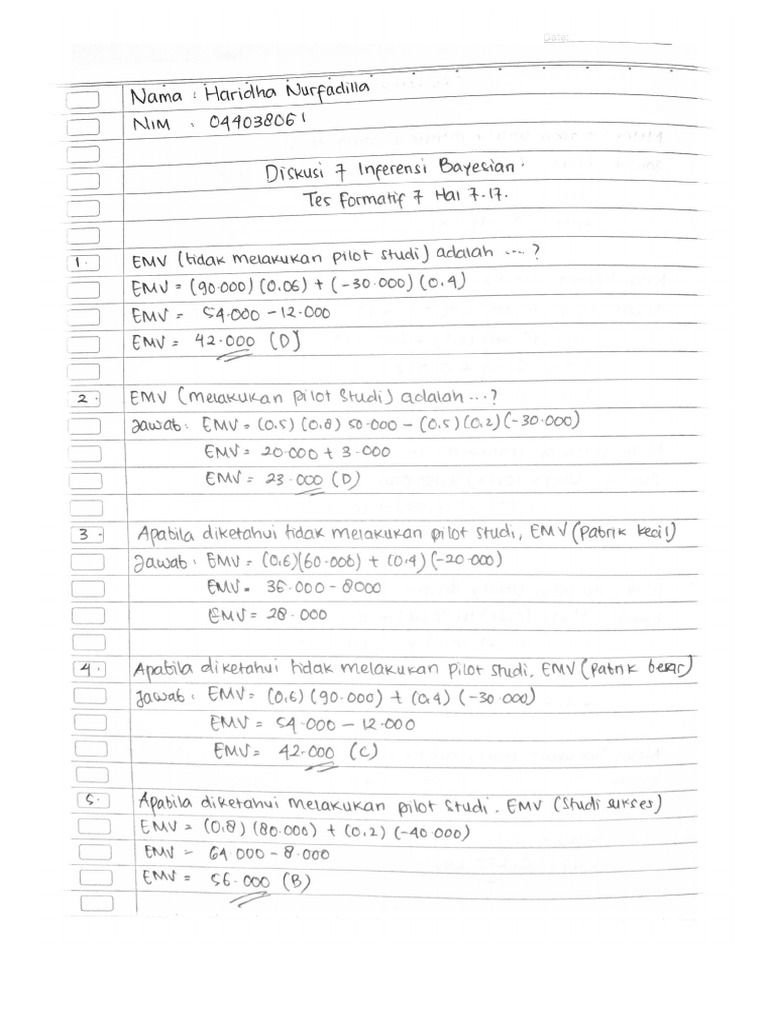 Date:
Nama : Haridha Nurfadilla
NIM : 044038061
Diskusi 7 Inferensi Bayesian.
Tes Formatif 7 Hal 7.17.
1. EMV (tidak melakukan pilot studi) adalah ....?
EMV = (90.000) (0.06) + (-30.000) (0.4)
EMV = 54.000 - 12.000
EMV = 42.000 (D)
2. EMV (melakukan pilot studi) adalah ...?
Jawab : EMV = (0,5) (0,8) 50.000 - (0,5) (0,2) (-30.000)
EMV = 20.000 + 3.000
EMV = 23.000 (D)
3. Apabila diketahui tidak melakukan pilot studi, EMV (pabrik kecil)
Jawab : EMV = (0,6)(60.000) + (0,4) (-20.000)
EMV = 36.000 - 8000
EMV = 28.000
4. Apabila diketahui tidak melakukan pilot studi. EMV (pabrik besar)
Jawab : EMV = (0,6) (90.000) + (0,4) (-30.000)
EMV = 54.000 - 12.000
EMV = 42.000 (C)
5. Apabila diketahui melakukan pilot studi. EMV (studi sukses)
EMV = (0,8) (80.000) + (0,2) (-40.000)
EMV = 64.000 - 8.000
EMV = 56.000 (B)